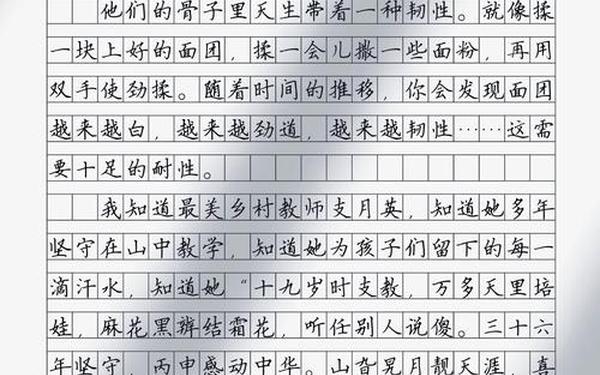 他们的骨子里天生带着一种韧性。就像揉
一块上好的面团，揉一会儿撒一些面粉，再用
双手使劲揉。随着时间的推移，你会发现面团
越来越白，越来越劲道，越来越韧性……这需
要十足的耐性。
我知道最美乡村教师支月英，知道她多年
坚守在山中教学，知道她为孩子们留下的每一
滴汗水，知道她“十九岁时支教，万多天里培
娃，麻花黑辫结霜花，听任别人说傻。三十六
年坚守，丙申感动中华。山旮晃月靓天涯，喜